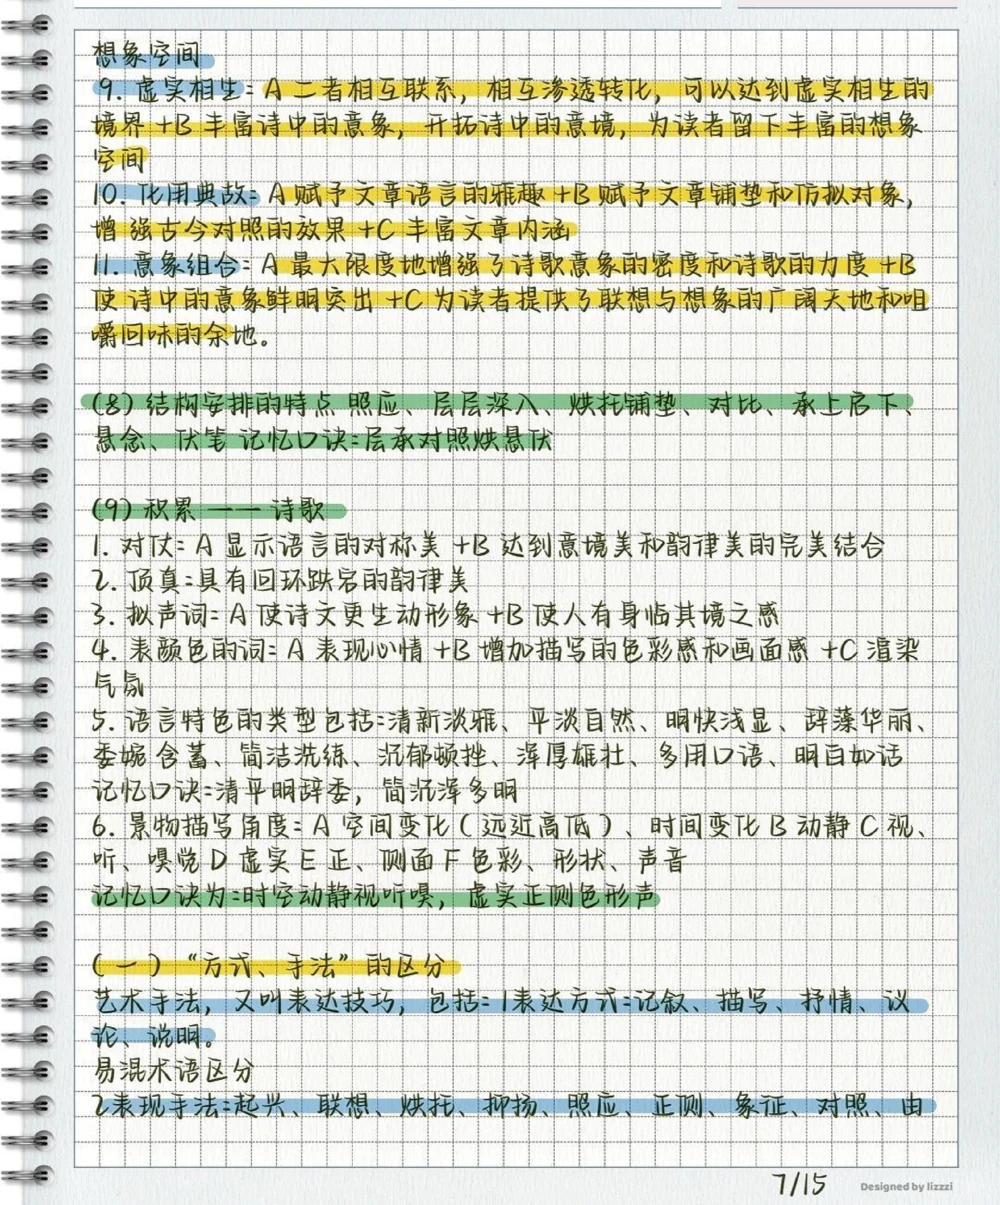 想象空间
9. 虚实相生: A 二者相互联系，相互渗透转化，可以达到虚实相生的
境界 +B 丰富诗中的意象，开拓诗中的意境，为读者留下丰富的想象
空间
10. 化用典故: A 赋予文章语言的雅趣 +B 赋予文章铺垫和仿拟对象，
增强古今对照的效果 +C 丰富文章内涵
11. 意象组合: A 最大限度地增强了诗歌意象的密度和诗歌的力度 +B
使诗中的意象鲜明突出 +C 为读者提供了联想与想象的广阔天地和咀
嚼回味的余地。
(8) 结构安排的特点 照应、层层深入、烘托铺垫、对比、承上启下、
悬念、伏笔 记忆口诀:层承对照烘悬伏
(9) 积累 —— 诗歌
1. 对仗: A 显示语言的对称美 +B 达到意境美和韵律美的完美结合
2. 顶真:具有回环跌宕的韵律美
3. 拟声词: A 使诗文更生动形象 +B 使人有身临其境之感
4. 表颜色的词: A 表现心情 +B 增加描写的色彩感和画面感 +C 渲染
气氛
5. 语言特色的类型包括:清新淡雅、平淡自然、明快浅显、辞藻华丽、
委婉含蓄、简洁洗练、沉郁顿挫、浑厚雄壮、多用口语、明白如话
记忆口诀:清平明辞委，简沉浑多明
6. 景物描写角度: A 空间变化（远近高低）、时间变化 B 动静 C 视、
听、嗅觉 D 虚实 E 正、侧面 F 色彩、形状、声音
记忆口诀为:时空动静视听嗅，虚实正侧色形声
(一) “方式、手法” 的区分
艺术手法，又叫表达技巧，包括: 1表达方式:记叙、描写、抒情、议
论、说明。
易混术语区分
2表现手法:起兴、联想、烘托、抑扬、照应、正侧、象征、对照、由
7/15
Designed by lizzzi